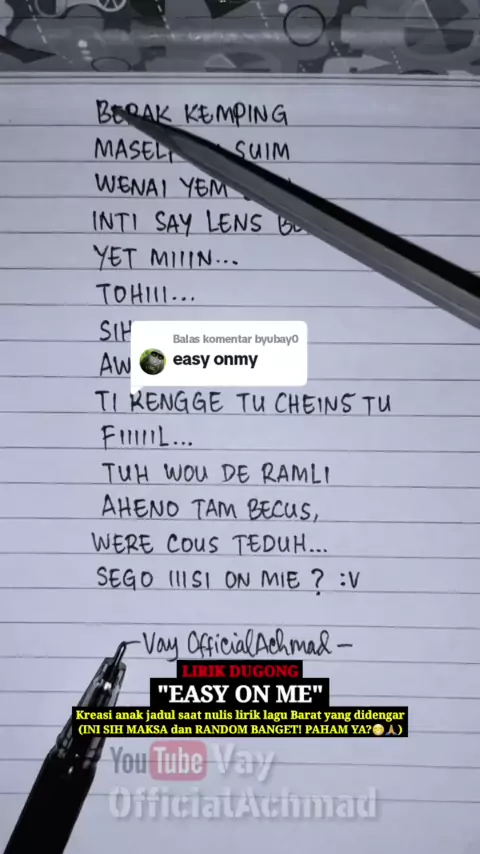 BERAK KEMPING
SUIM
WENAI YEM
INTI SAY LENS
YET MIIIN...
TOHIII...
Balas komentar byubay0
easy onmy
TI RENGGE TU CHEINS TU
FIIIIIL...
TUH WOU DE RAMLI
AHENO TAM BECUS,
WERE COUS TEDUH...
SEGO IIISI ON MIE ? :V
-Vay OfficialAchmad-
LIRIK DUGONG
"EASY ON ME"
Kreasi anak jadul saat nulis lirik lagu Barat yang didengar
(INI SIH MAKSA dan RANDOM BANGET! PAHAM YA?😁🙏)
YouTube Vay
OfficialAchmad